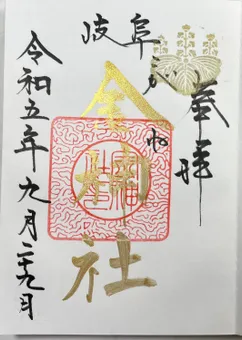 奉拝
岐阜
金神社
令和五年九月二十九日